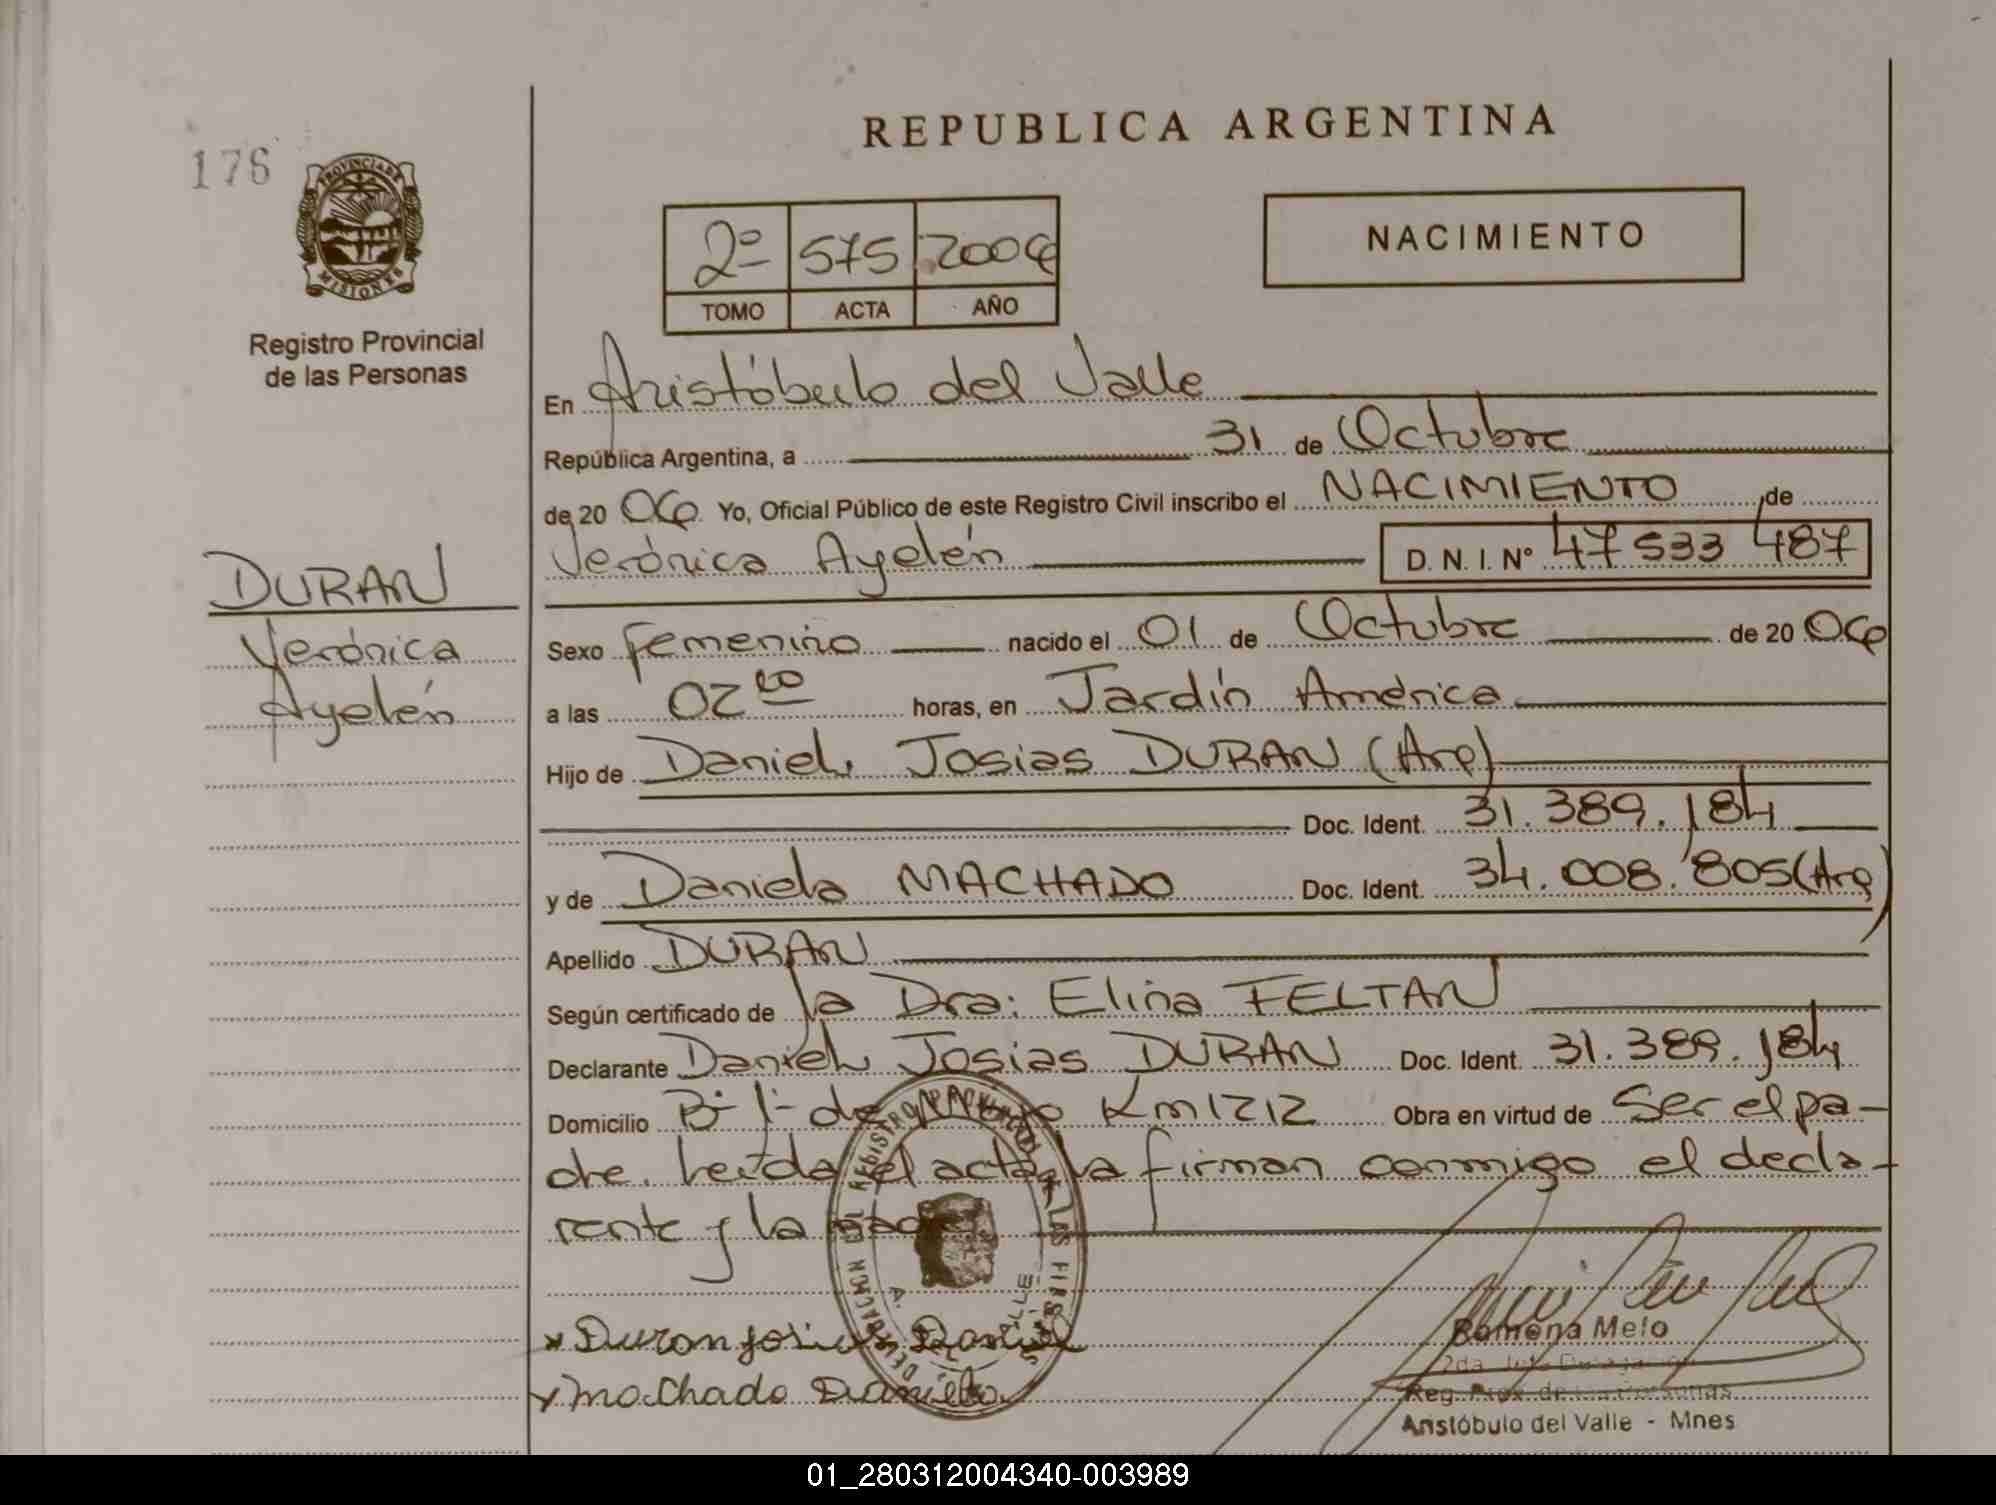 REPUBLICA ARGENTINA
176
PROVINCIA DE
MISIONES
Registro Provincial
de las Personas
2º 575 2006
TOMO ACTA AÑO
NACIMIENTO
En Aristóbulo del Valle
República Argentina, a 31 de Octubre
de 20 06 Yo, Oficial Público de este Registro Civil inscribo el NACIMIENTO de
Verónica Ayelén D. N. I. Nº 47 533 487
DURAN
Verónica
Ayelén
Sexo femenino nacido el 01 de Octubre de 20 06
a las 02 00 horas, en Jardín América
Hijo de Daniel Josias DURAN (Arg)
Doc. Ident. 31.389.184
y de Daniela MACHADO Doc. Ident. 34.008.805 (Arg)
Apellido DURAN
Según certificado de la Dra: Elina FELTAN
Declarante Daniel Josias DURAN Doc. Ident. 31.389.184
Domicilio Bº 1º de Mayo Km 1212 Obra en virtud de Ser el pa-
dre. Leída el acta la firman conmigo el decla-
rante y la madre
x Duran Josias Daniel
x Machado Daniela
Romena Melo
2da. Jefe Delegación
Reg. Prov. de las Personas
Aristóbulo del Valle - Mnes
01_280312004340-003989